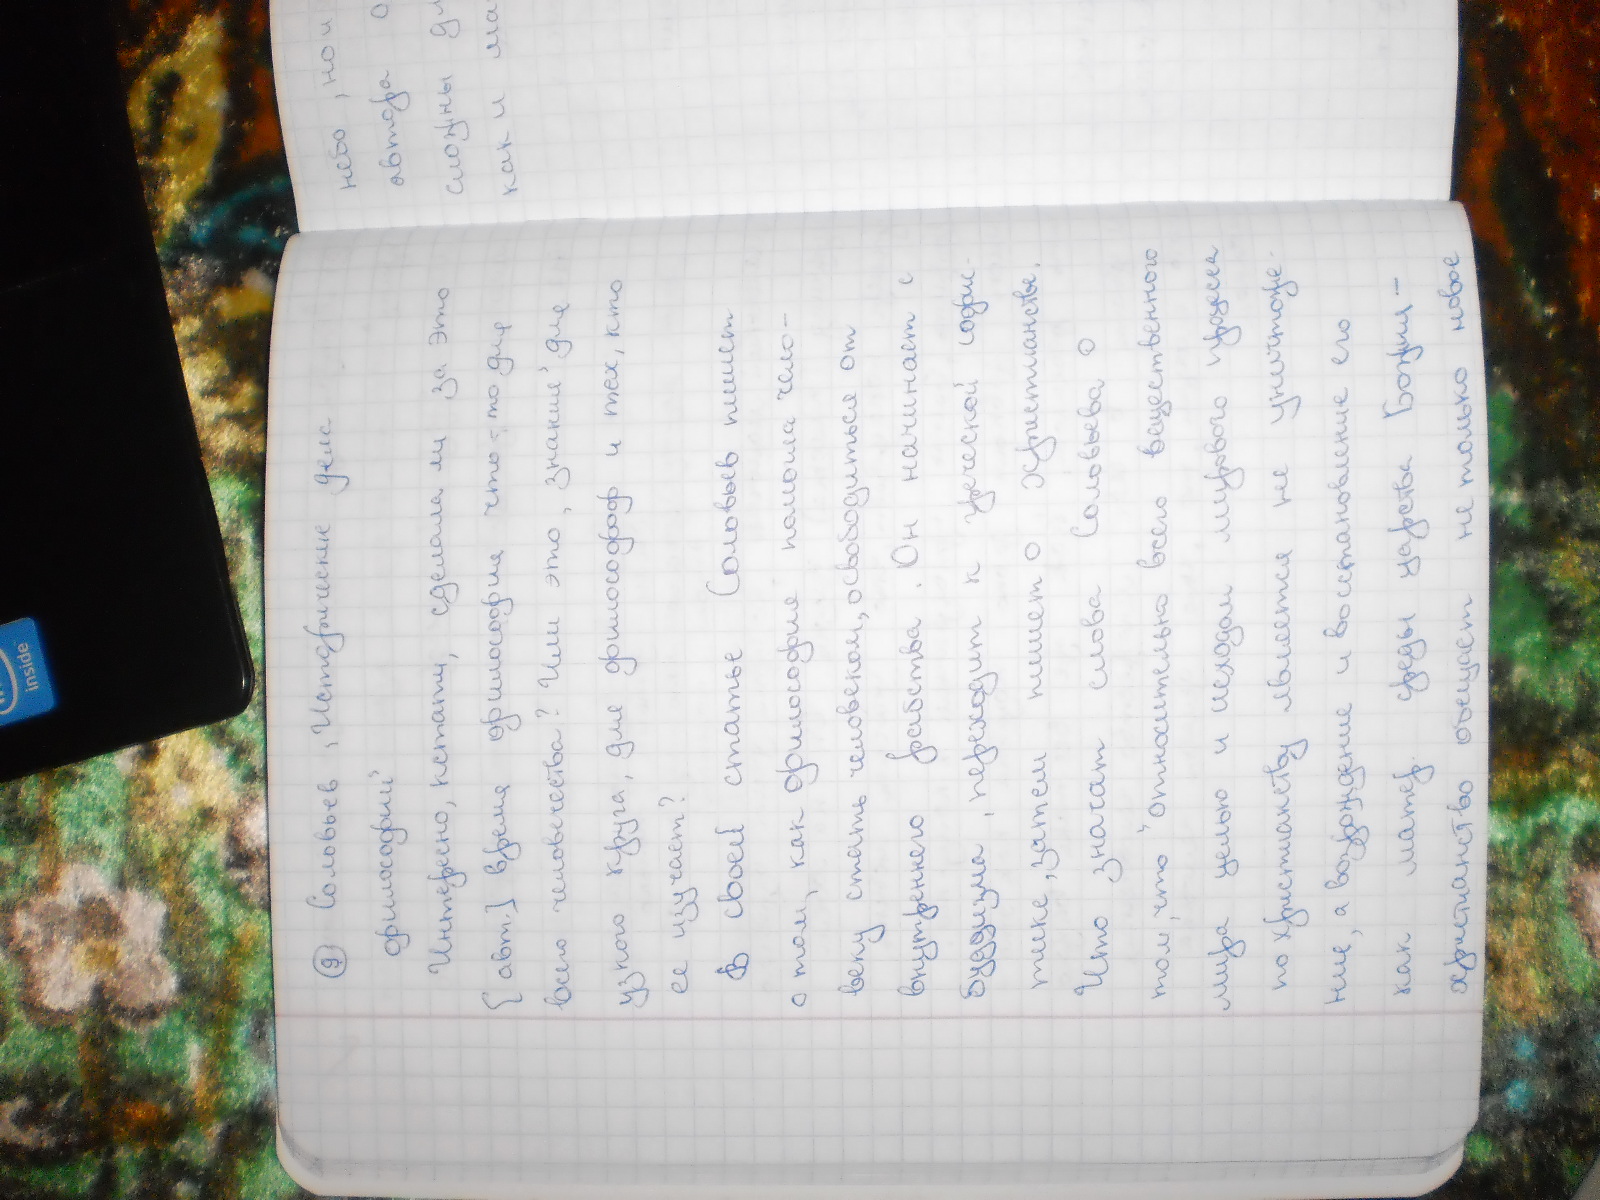 небо, но и
автора о
сложны дл
как и ма
9) Соловьев, Исторические дела
философий
Интересно, кстати, сделала ли за это
[авт.] время философия что-то для
всего человечества? Или это, знание для
узкого круга, для философоф и тех, кто
ее изучает?
В своей статье Соловьев пишет
о том, как философия помогла чело-
веку стать человеком, освободиться от
внутреннего рабства. Он начинает с
буддизма, переходит к греческой софис-
тике, затем пишет о христианстве.
Что значат слова Соловьева о
том, что "относительно всего вещественного
мира целью и исходом мирового процесса
по христианству является не уничтоже-
ние, а возрождение и восстановление его
как матер. среды царства Божия –
христианство обещает не только новое
inside